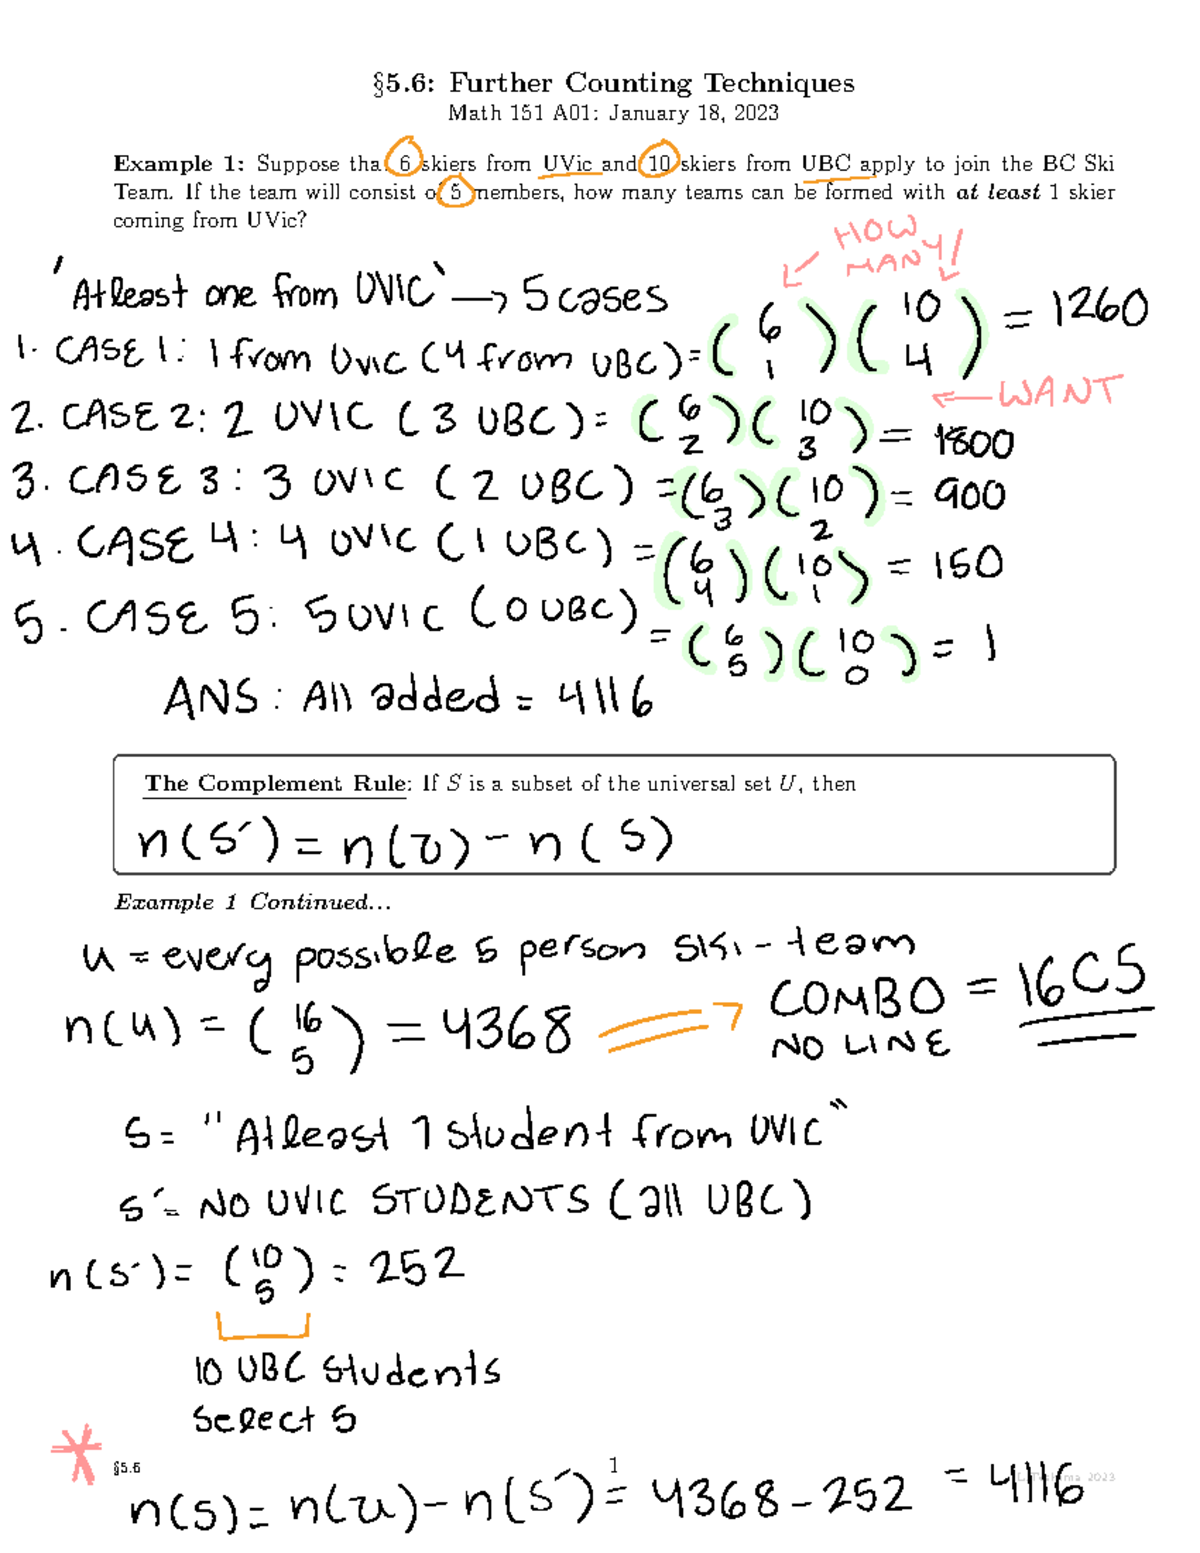 §5.6: Further Counting Techniques
Math 151 A01: January 18, 2023
Example 1: Suppose tha 6 skiers from UVic and 10 skiers from UBC apply to join the BC Ski
Team. If the team will consist of 5 members, how many teams can be formed with at least 1 skier
coming from UVic?
HOW
MANY!
'Atleast one from UVIC' → 5 cases
1. CASE 1: 1 from UVIC (4 from UBC) = (6 1)(10 4) = 1260
← WANT
2. CASE 2: 2 UVIC (3 UBC) = (6 2)(10 3) = 1800
3. CASE 3: 3 UVIC (2 UBC) = (6 3)(10 2) = 900
4. CASE 4: 4 UVIC (1 UBC) = (6 4)(10 1) = 150
5. CASE 5: 5 UVIC (0 UBC) = (6 5)(10 0) = 1
ANS: All added = 4116
The Complement Rule: If S is a subset of the universal set U, then
n(S') = n(U) - n(S)
Example 1 Continued...
U = every possible 5 person ski-team
n(U) = (16 5) = 4368 → COMBO = 16C5
NO LINE
S = "Atleast 1 student from UVIC"
S' = NO UVIC STUDENTS (all UBC)
n(S') = (10 5) = 252
10 UBC students
Select 5
§5.6
1
2023
n(S) = n(U) - n(S') = 4368 - 252 = 4116